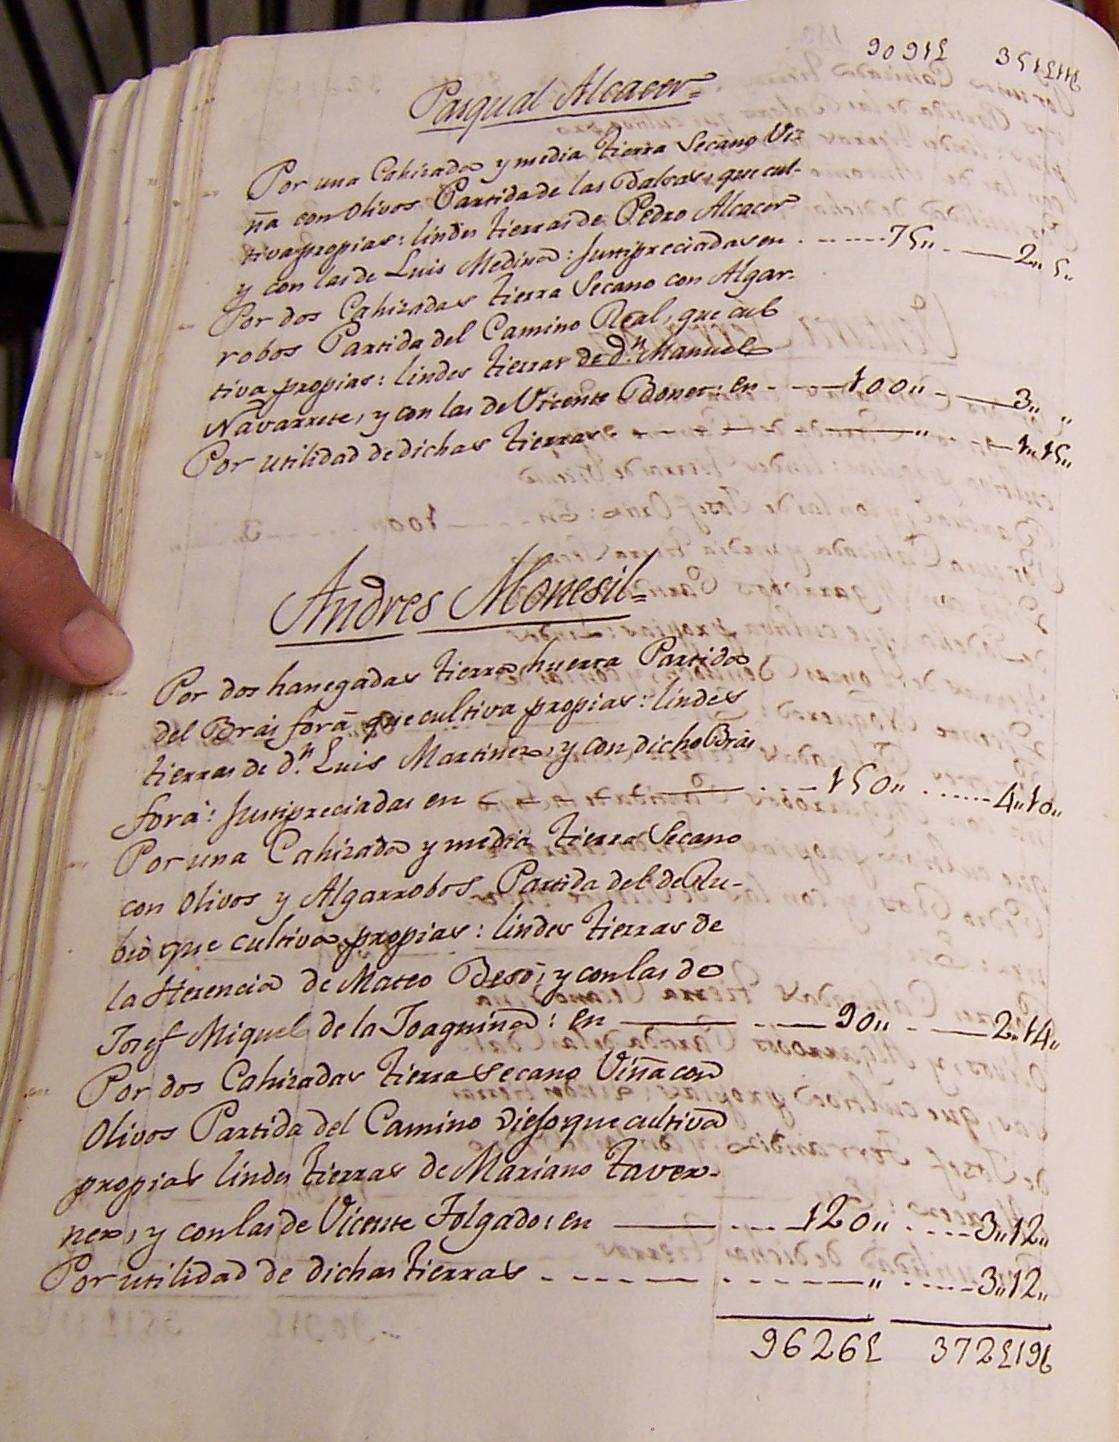 9091£ 351£11
Pasqual Alcacer=
Por una Cahizada y media tierra Secano Vi-
ña con Olivos Partida de las Balsas, que cul-
tiva propias: lindes tierras de Pedro Alcacer
y con las de Luis Medina: Justipreciadas en 75,, 2,, 5,,
Por dos Cahizadas tierra Secano con Algar-
robos Partida del Camino Real, que cul
tiva propias: lindes tierras de dn. Manuel
Navarrete, y con las de Vicente Boner: en 100,, 3,, ,,
Por utilidad de dichas tierras ,, 1,,15,,
Andres Monesil=
Por dos hanegadas tierra huerta Partida
del Bras forá que cultiva propias: lindes
tierras de dn. Luis Martinez, y con dicho Bras
forá: Justipreciadas en 150,, 4,,10,,
Por una Cahizada y media tierra Secano
con Olivos y Algarrobos Partida del de Ru-
bio que cultiva propias: lindes tierras de
la Herencia de Mateo Besó, y con las de
Josef Miguel de la Joaquina: en 90,, 2,,14,,
Por dos Cahizadas tierra Secano Viña con
Olivos Partida del Camino viejo que cultiva
propias lindes tierras de Mariano Taver-
ner, y con las de Vicente Folgado: en 120,, 3,,12,,
Por utilidad de dichas tierras ,, 3,,12,,
9626£ 372£19